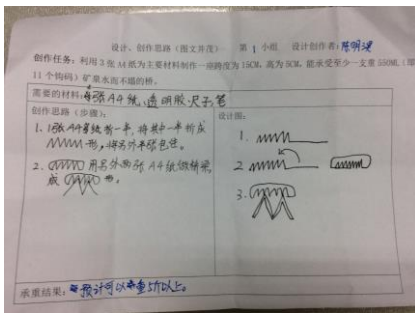 设计、创作思路（图文并茂） 第 1 小组 设计创作者：陈明淏
创作任务：利用 3 张 A4 纸为主要材料制作一座跨度为 15CM，高为 5CM，能承受至少一支重 550ML（即
11 个钩码）矿泉水而不塌的桥。
需要的材料：4张A4纸、透明胶、尺子、笔
创作思路（步骤）：
设计图：
1. 1张A4首先折一半，将其中一半折成
形，将另外半张包住。
2. 用另外两张A4纸做桥梁，
成 形。
1.
2
3.
承重结果：预计可以承重5斤以上。